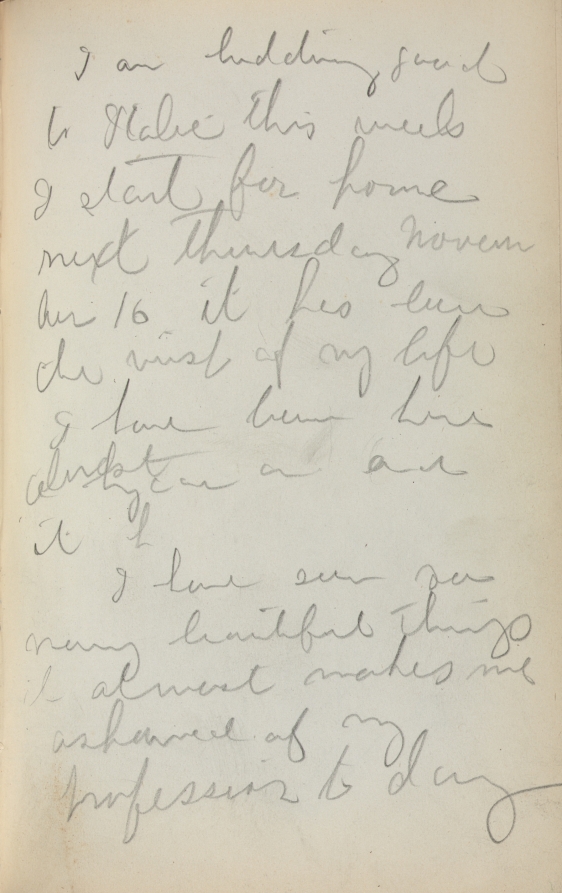 I am bidding good
to Italie this week
I start for home
next Thursday Novem
ber 16 it has been
the visit of my life
I have been here
almost year on and
it h
I have seen so
many beautiful things
it almost makes me
ashamed of my
profession to day